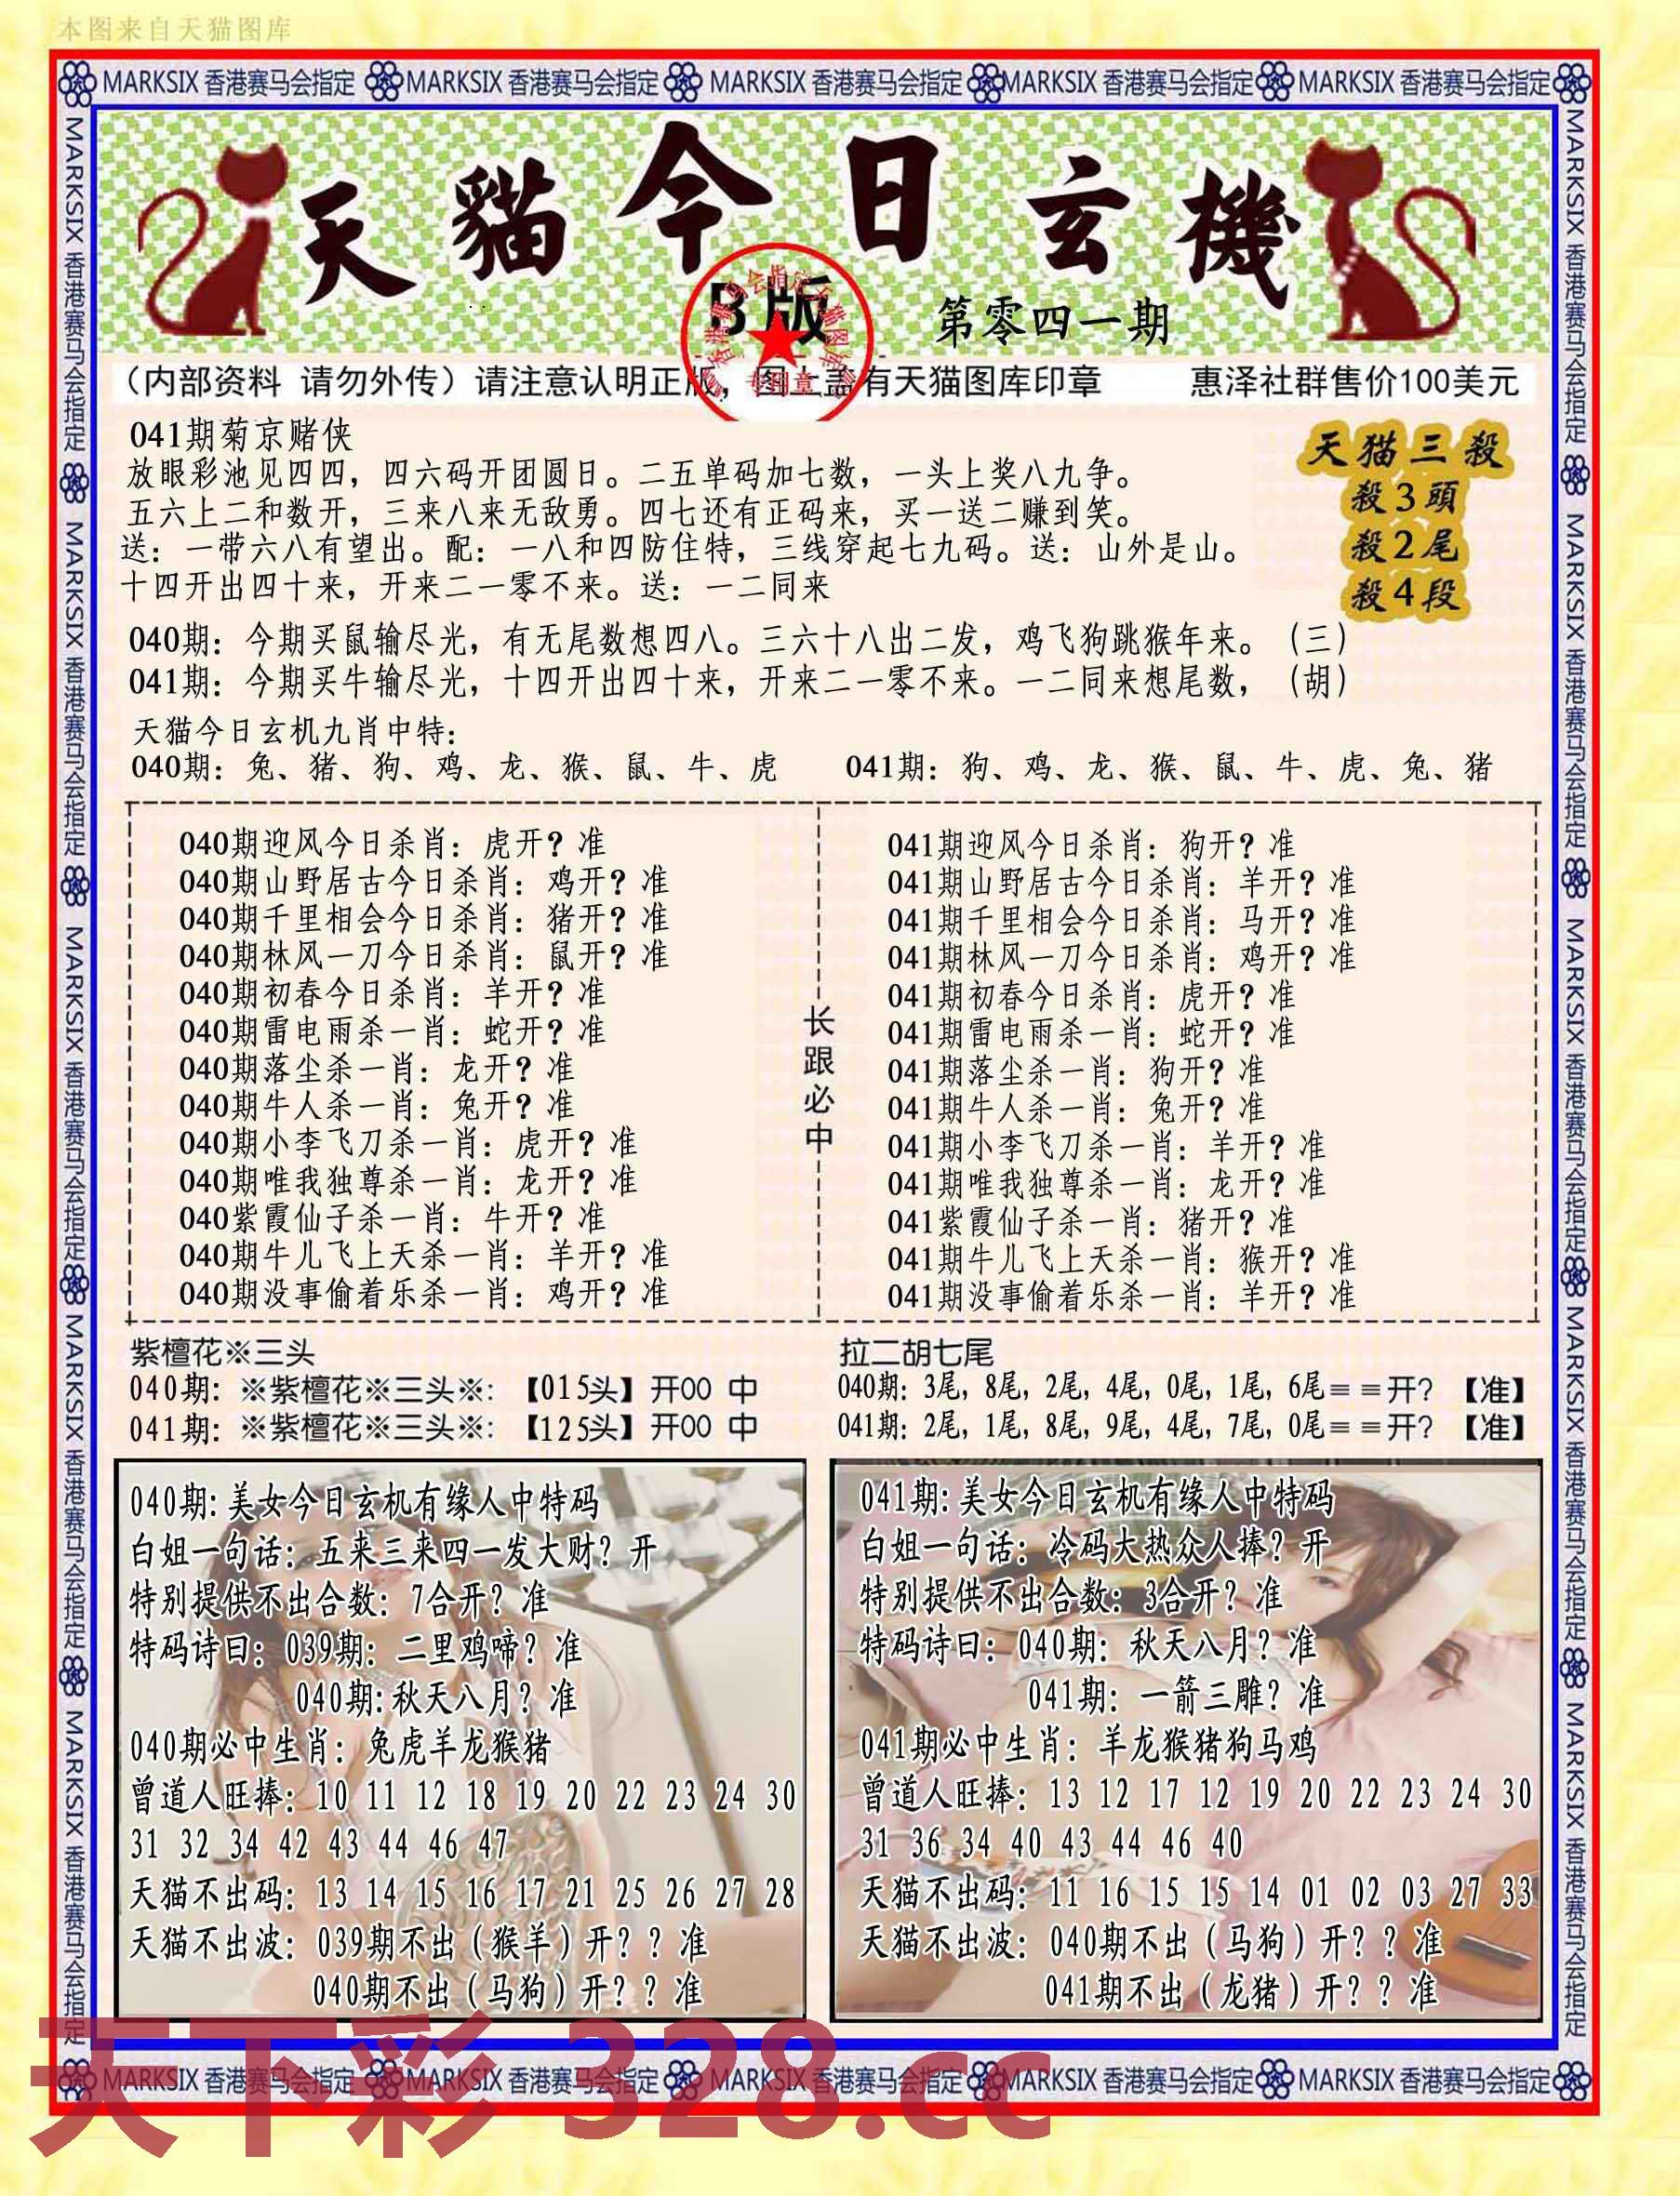 本图来自天猫图库
MARKSIX 香港赛马会指定 MARKSIX 香港赛马会指定 MARKSIX 香港赛马会指定 MARKSIX 香港赛马会指定 MARKSIX 香港赛马会指定
MARKSIX 香港赛马会指定 MARKSIX 香港赛马会指定 MARKSIX 香港赛马会指定 MARKSIX 香港赛马会指定 MARKSIX 香港赛马会指定
MARKSIX 香港赛马会指定 MARKSIX 香港赛马会指定 MARKSIX 香港赛马会指定 MARKSIX 香港赛马会指定 MARKSIX 香港赛马会指定
天貓今日玄機
B版
第零四一期
专用章
（内部资料 请勿外传）请注意认明正版，图上盖有天猫图库印章 惠泽社群售价100美元
041期菊京赌侠
放眼彩池见四四，四六码开团圆日。二五单码加七数，一头上奖八九争。
五六上二和数开，三来八来无敌勇。四七还有正码来，买一送二赚到笑。
送：一带六八有望出。配：一八和四防住特，三线穿起七九码。送：山外是山。
十四开出四十来，开来二一零不来。送：一二同来
天猫三殺
殺3頭
殺2尾
殺4段
040期：今期买鼠输尽光，有无尾数想四八。三六十八出二发，鸡飞狗跳猴年来。（三）
041期：今期买牛输尽光，十四开出四十来，开来二一零不来。一二同来想尾数，（胡）
天猫今日玄机九肖中特：
040期：兔、猪、狗、鸡、龙、猴、鼠、牛、虎 041期：狗、鸡、龙、猴、鼠、牛、虎、兔、猪
040期迎风今日杀肖：虎开？准
040期山野居古今日杀肖：鸡开？准
040期千里相会今日杀肖：猪开？准
040期林风一刀今日杀肖：鼠开？准
040期初春今日杀肖：羊开？准
040期雷电雨杀一肖：蛇开？准
040期落尘杀一肖：龙开？准
040期牛人杀一肖：兔开？准
040期小李飞刀杀一肖：虎开？准
040期唯我独尊杀一肖：龙开？准
040紫霞仙子杀一肖：牛开？准
040期牛儿飞上天杀一肖：羊开？准
040期没事偷着乐杀一肖：鸡开？准
长跟必中
041期迎风今日杀肖：狗开？准
041期山野居古今日杀肖：羊开？准
041期千里相会今日杀肖：马开？准
041期林风一刀今日杀肖：鸡开？准
041期初春今日杀肖：虎开？准
041期雷电雨杀一肖：蛇开？准
041期落尘杀一肖：狗开？准
041期牛人杀一肖：兔开？准
041期小李飞刀杀一肖：羊开？准
041期唯我独尊杀一肖：龙开？准
041紫霞仙子杀一肖：猪开？准
041期牛儿飞上天杀一肖：猴开？准
041期没事偷着乐杀一肖：羊开？准
紫檀花※三头
040期：※紫檀花※三头※：【015头】开00 中
041期：※紫檀花※三头※：【125头】开00 中
拉二胡七尾
040期：3尾，8尾，2尾，4尾，0尾，1尾，6尾＝＝开？【准】
041期：2尾，1尾，8尾，9尾，4尾，7尾，0尾＝＝开？【准】
040期:美女今日玄机有缘人中特码
白姐一句话：五来三来四一发大财？开
特别提供不出合数：7合开？准
特码诗曰：039期：二里鸡啼？准
040期:秋天八月？准
040期必中生肖：兔虎羊龙猴猪
曾道人旺捧：10 11 12 18 19 20 22 23 24 30
31 32 34 42 43 44 46 47
天猫不出码：13 14 15 16 17 21 25 26 27 28
天猫不出波：039期不出（猴羊）开？？准
040期不出（马狗）开？？准
041期:美女今日玄机有缘人中特码
白姐一句话：冷码大热众人捧？开
特别提供不出合数：3合开？准
特码诗曰：040期：秋天八月？准
041期：一箭三雕？准
041期必中生肖：羊龙猴猪狗马鸡
曾道人旺捧：13 12 17 12 19 20 22 23 24 30
31 36 34 40 43 44 46 40
天猫不出码：11 16 15 15 14 01 02 03 27 33
天猫不出波：040期不出（马狗）开？？准
041期不出（龙猪）开？？准
MARKSIX 香港赛马会指定 MARKSIX 香港赛马会指定 MARKSIX 香港赛马会指定 MARKSIX 香港赛马会指定 MARKSIX 香港赛马会指定
天下彩 328.cc